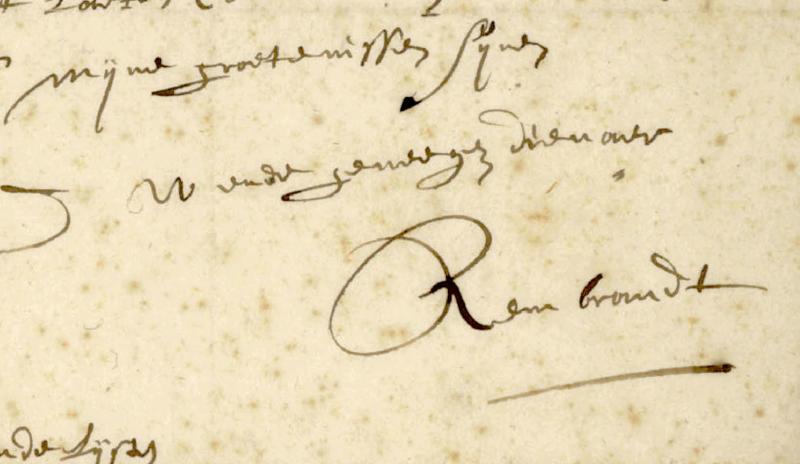 mijne groetenissen sijnen
W ende geneegen dienaer
Rembrandt